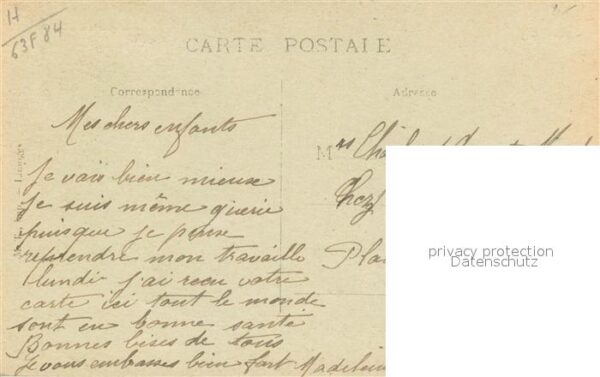 H
63F84
CARTE POSTALE
Correspondance
Adresse
Mes chers enfants
Je vais bien mieux
Je suis même guérie
puisque je pense
reprendre mon travaille
lundi j'ai reçu votre
carte ici tout le monde
sont en bonne santé
Bonnes bises de tous
Je vous embrasses bien fort Madelein
Mrs
Chez
Pla
privacy protection
Datenschutz